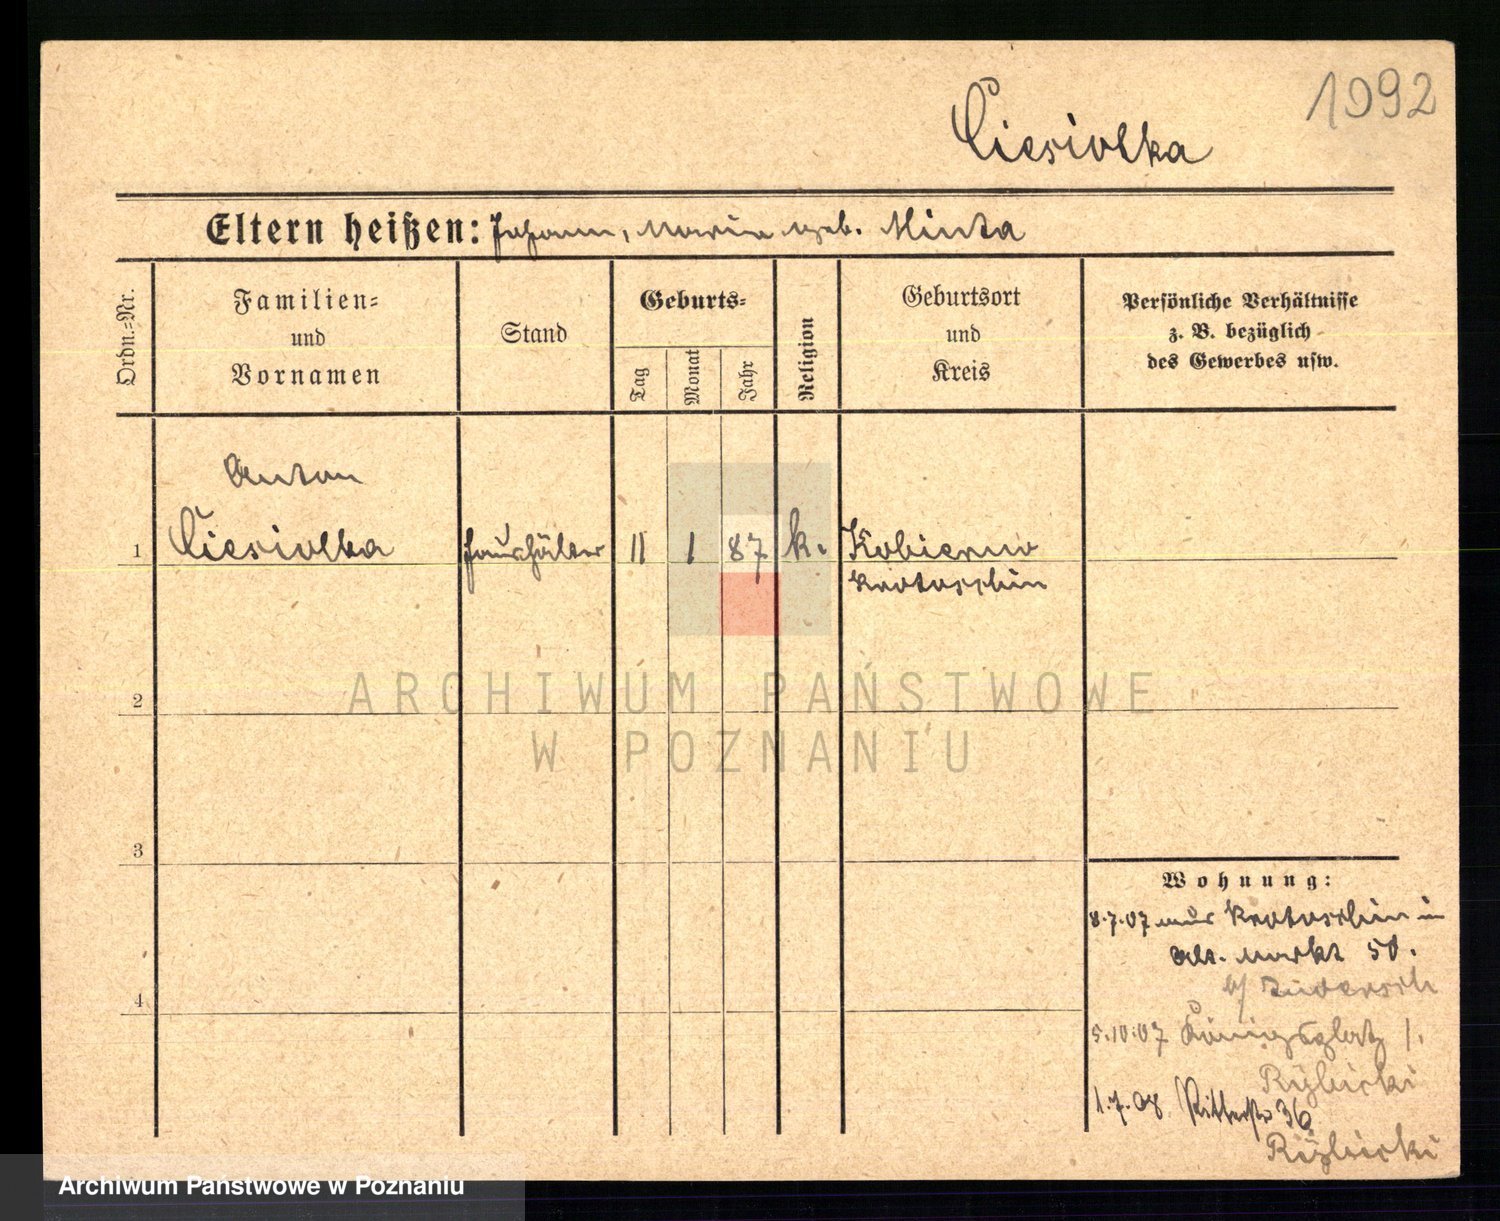 1092
Ciesiolka
Eltern heißen: Johann, Maria geb. Minta
Ordn.=Nr.
Familien=
und
Vornamen
Stand
Geburts=
Tag
Monat
Jahr
Religion
Geburtsort
und
Kreis
Persönliche Verhältnisse
z. B. bezüglich
des Gewerbes usw.
Anton
1 Ciesiolka Haushälter 11 1 87 k. Kobierno
Krotoschin
ARCHIWUM PAŃSTWOWE
W POZNANIU
2
3
4
Wohnung:
8.7.07 aus Krotoschin in
Alt. Markt 50.
b/
5.10.07 Königsplatz 1.
Rybicki
1.7.08 Ritterstr 36
Rybicki
Archiwum Państwowe w Poznaniu